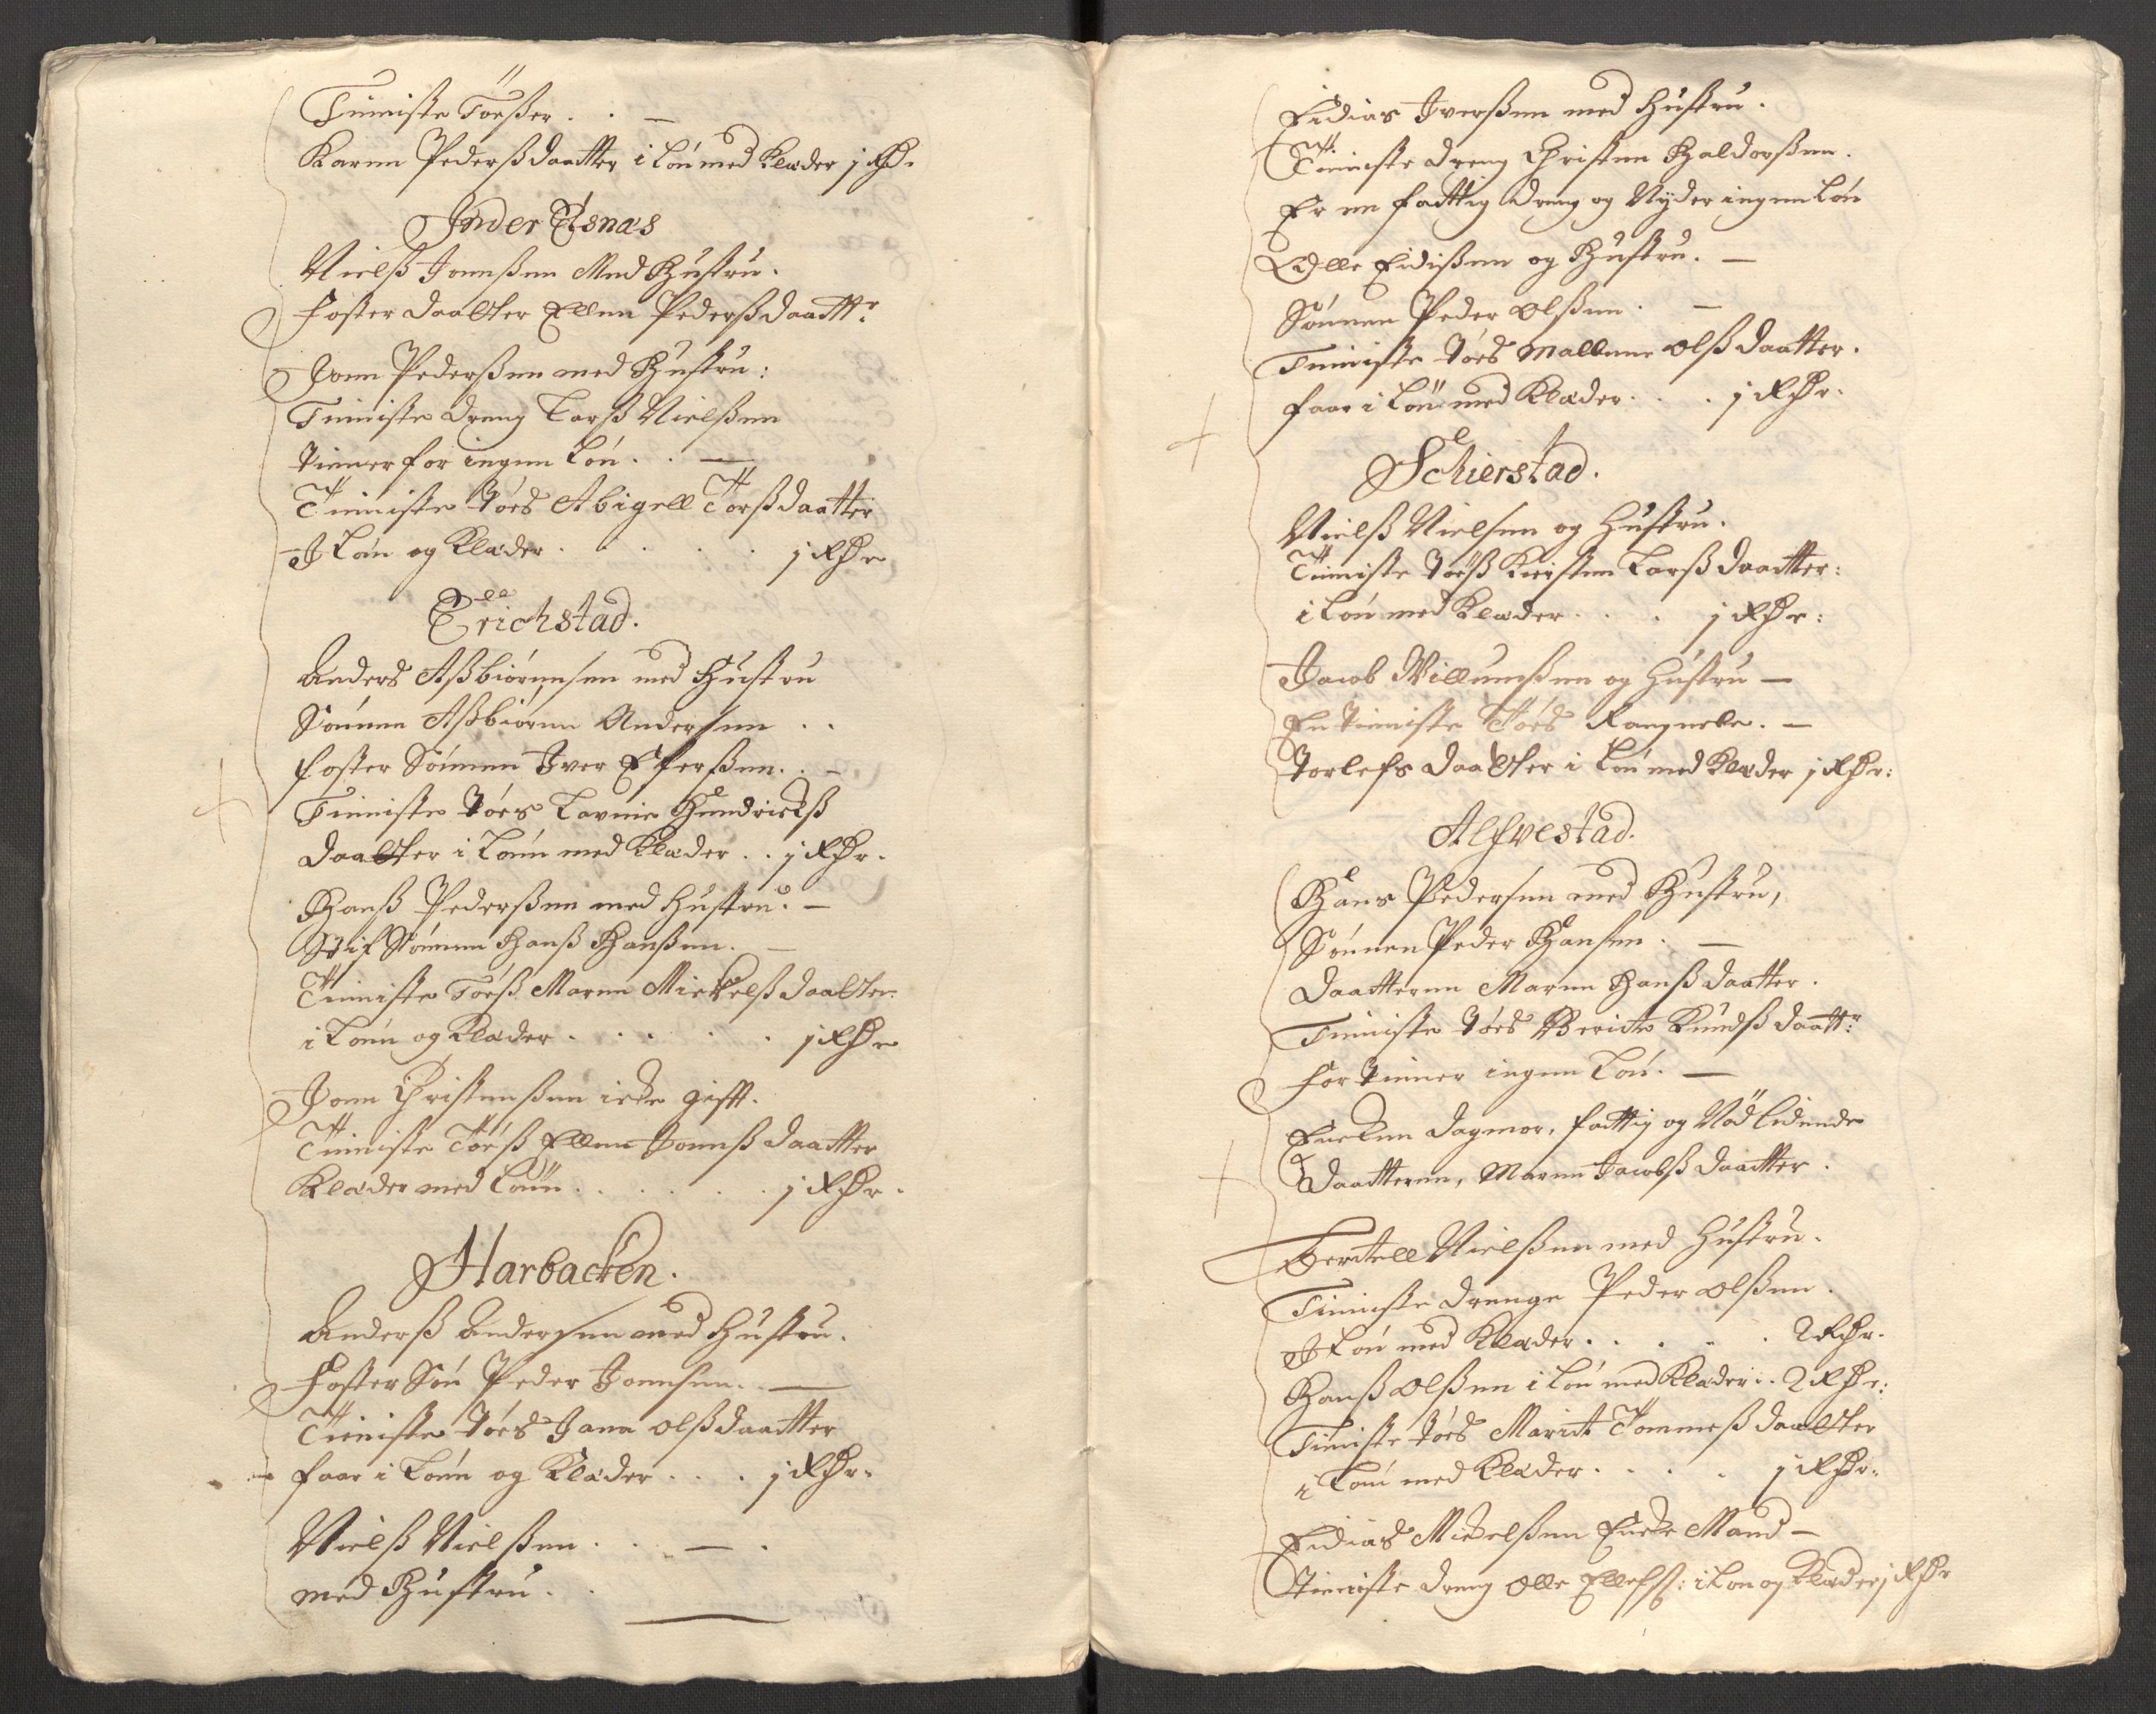 Tieniste Töeßer . . —
Karen Pederßdaatter i Lön med Klæder j Rdr
Inder Esnæs
Nielß Jonnßen Med Hustru .
Foster daatter Ellen Pederßdaattr:
Jonn Pederßen med Hustru :
Tieniste dreng Larß Nielßen
tiener for ingen Lön . . —
Tieniste töes Abigell Torßdaatter
J Lön og Klæder . . . . . j Rdr
Erichstad .
Anders Aßbiörnnsen med Hustru
Sönnen Aßbiörnn Andersen . .
foster Sönnen Jver Eferßen . . –
Tieniste töes Lavrine Hendrichß
daatter i Lönn med Klæder . . j Rdr .
Hanß Pederßen med Hustru . –
Stif Sönnen Hanß Hanßen . —
Tieniste Töeß Maren Mickelßdaatter
i Lönn og Klæder . . . . . j Rdr
Jonn Christenßen icke gifft .
Tieniste Töeß Ellen Jonnß daatter
Klæder med Lönn . . . . . j Rdr .
Harbacken .
Anderß Andersen med Hustru .
Foster Sön Peder Jonnsen . . —
Tieniste töes Jana olßdaatter
faar i Lönn og Klæder . . . j Rdr .
Nielß Nielßen . . — .
med Hustru . .
Eidias Iverßen med Hustru .
Tieniste dreng Christen Haldorßen .
Er en fattig dreng og Nyder ingen Lön
Olle Eidißen og Hustru . —
Sönnen Peder olßen . —
Tieniste töes Mallene olßdaatter .
faar i Lön med Klæder . . . j Rdr .
Schierstad .
Nielß Nielsen og Hustru .
Tieniste töeß Kirsten Larßdaatter :
i Lön med Klæder . . . j Rdr :
Jacob Willumßen og Hustru —
En tieniste Töes Rangnele . —
Torlefs daatter i Lön med Klæder j Rdr :
Alfvestad .
Hans Pedersen med Hustru ,
Sönnen Peder Hansen . —
Daatteren Maren Hanßdaatter .
Tieniste töes Berite Knudß daattr:
for tiener ingen Lön . —
Encken Dagmor , fattig og Nödlidende
Daatteren , Maren Jacobß daatter .
Bertell Nielßen med Hustru .
Tieniste drenge Peder olßen .
J Lön med Klæder . . . . . 2 Rdr .
Hanß olßen i Lön med Klæder . . 2 Rdr :
Tieniste töes Marit Tommeß daatter
i Lön med Klæder . . . . j Rdr .
Eidias Mickelßen Encke Mand —
Tieniste dreng Olle Ellefs: i Lon og Klæder j Rdr